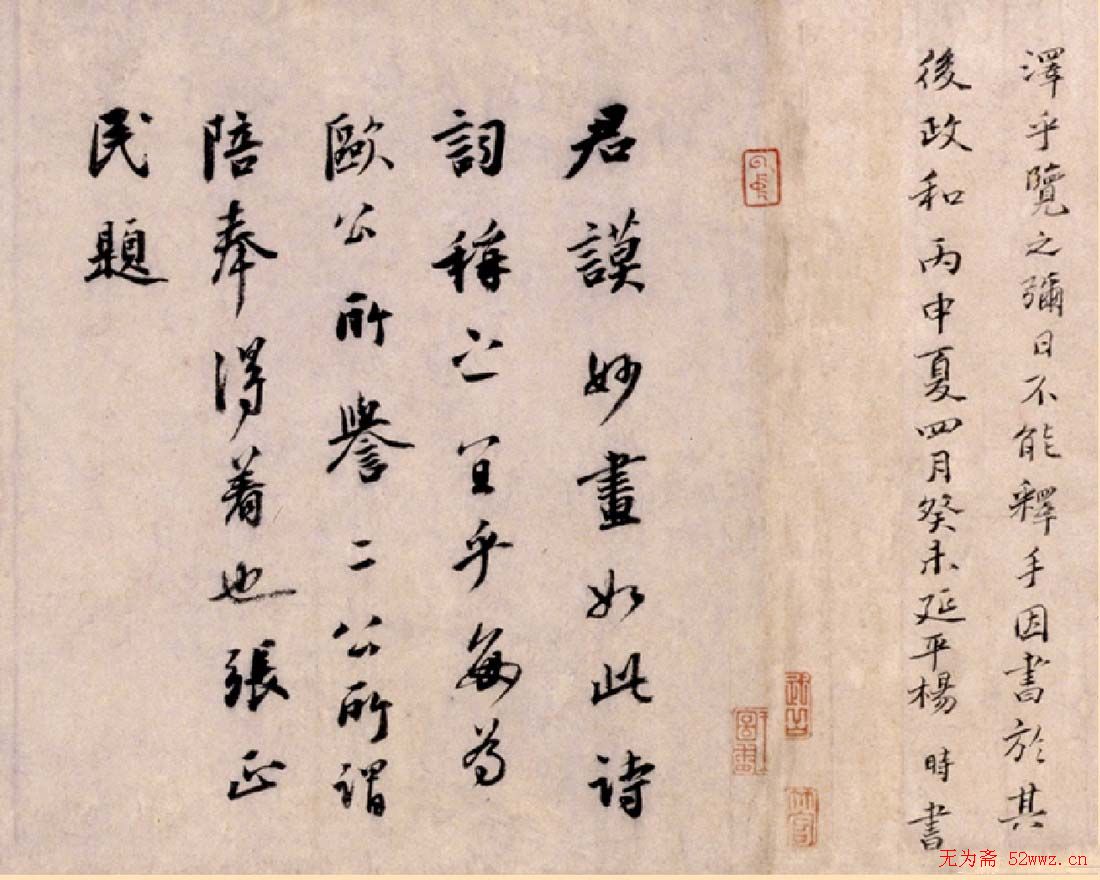 澤乎覽之彌日不能釋手因書於其
後政和丙申夏四月癸未延平楊時書
君謨妙畫如此詩
詞稱之宜乎每為
歐公所譽二公所謂
陪奉得着也張正
民題
无为斋 52wwz.cn